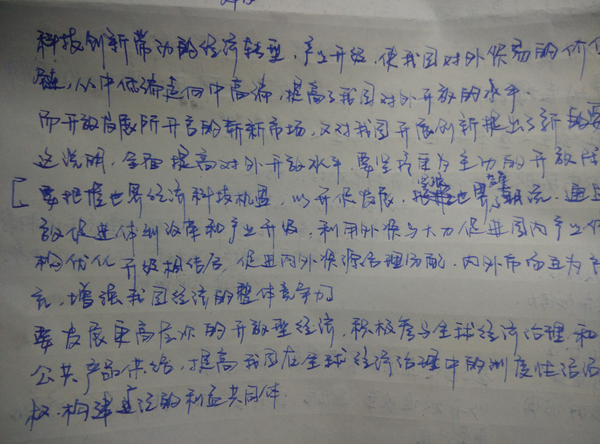 科技创新带动的经济转型,产业升级,使我国对外贸易的价值
链,从中低端走向中高端,提高了我国对外开放的水平.
而开放发展所开启的崭新市场,又对我国开展创新提出了新的要
这说明,全面提高对外开放水平,要坚持更为主动的开放
要把握世界经济科技机遇,以开促发展,世界潮流.通过
放促进体制改革和产业升级,利用外贸与大力促进国内产业
构优化升级相结合,促进内外资源合理分配,内外市场互为
充,增强我国经济的整体竞争力
要发展更高层次的开放型经济,积极参与全球经济治理和
公共产品供给,提高我国在全球经济治理中的制度性话语
权,构建广泛的利益共同体